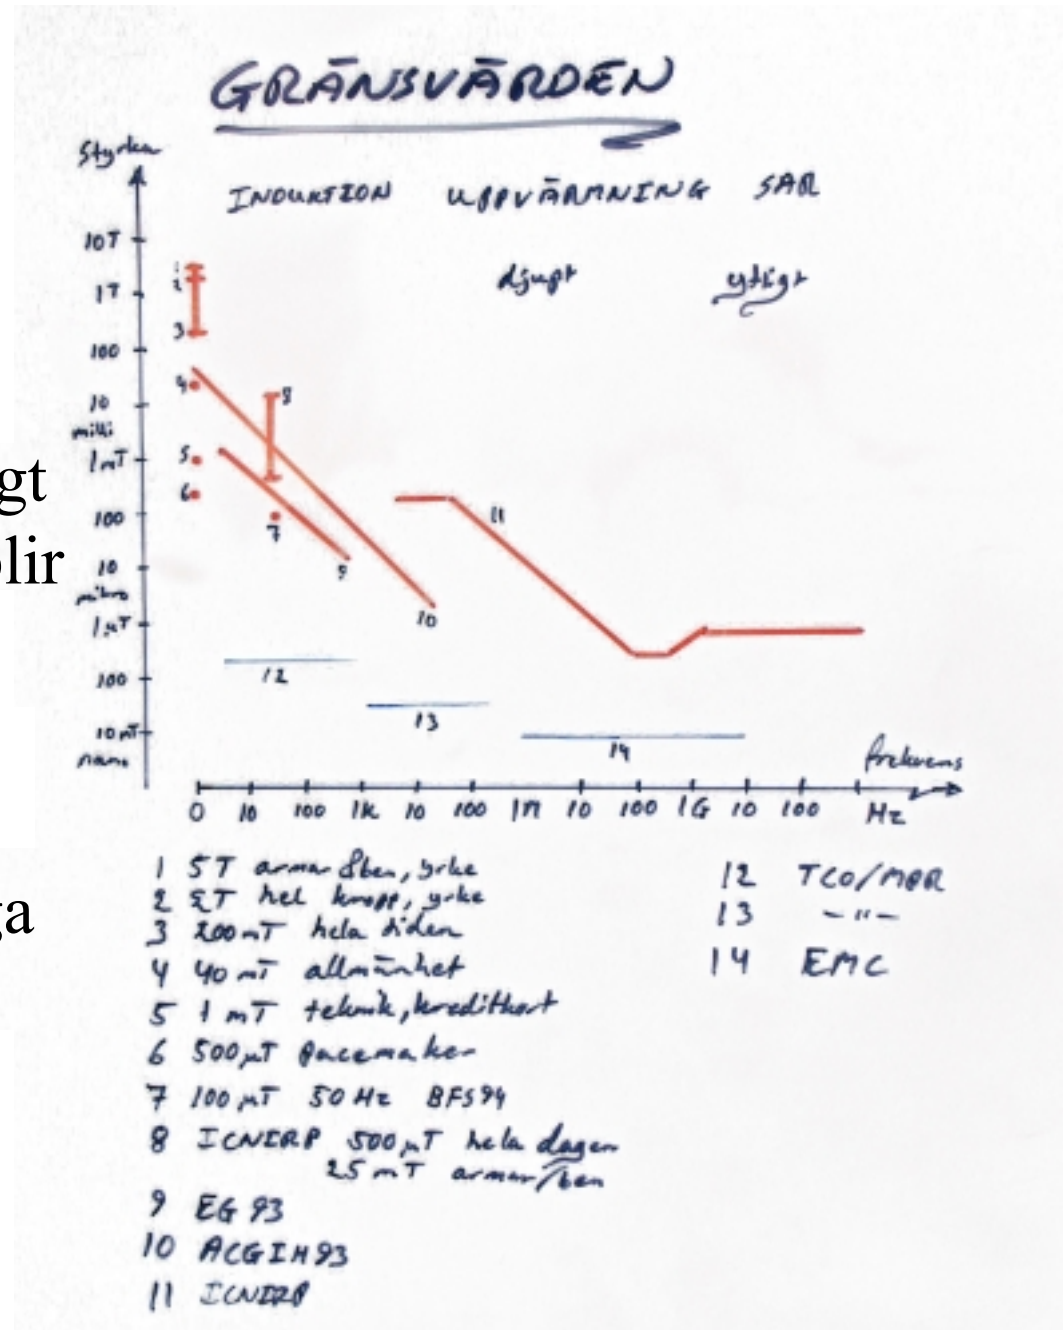 GRÄNSVÄRDEN
Styrka
INDUKTION UPPVÄRMNING SAR
djupt ytligt
10T
1T
100
10
milli
1mT
100
10
mikro
1µT
100
10 nT
nano
1
2
3
4
5
6
7
8
9
10
11
12
13
14
gt
lir
ga
frekvens
0 10 100 1K 10 100 1M 10 100 1G 10 100 Hz
1 5T armar & ben, yrke
2 2T hel kropp, yrke
3 200mT hela tiden
4 40 mT allmänhet
5 1 mT teknik, kreditkort
6 500µT pacemaker
7 100µT 50 Hz BFS94
8 ICNIRP 500µT hela dagen
25 mT armar/ben
9 EG 93
10 ACGIH93
11 ICNIRP
12 TCO/MPR
13 -"-
14 EMC